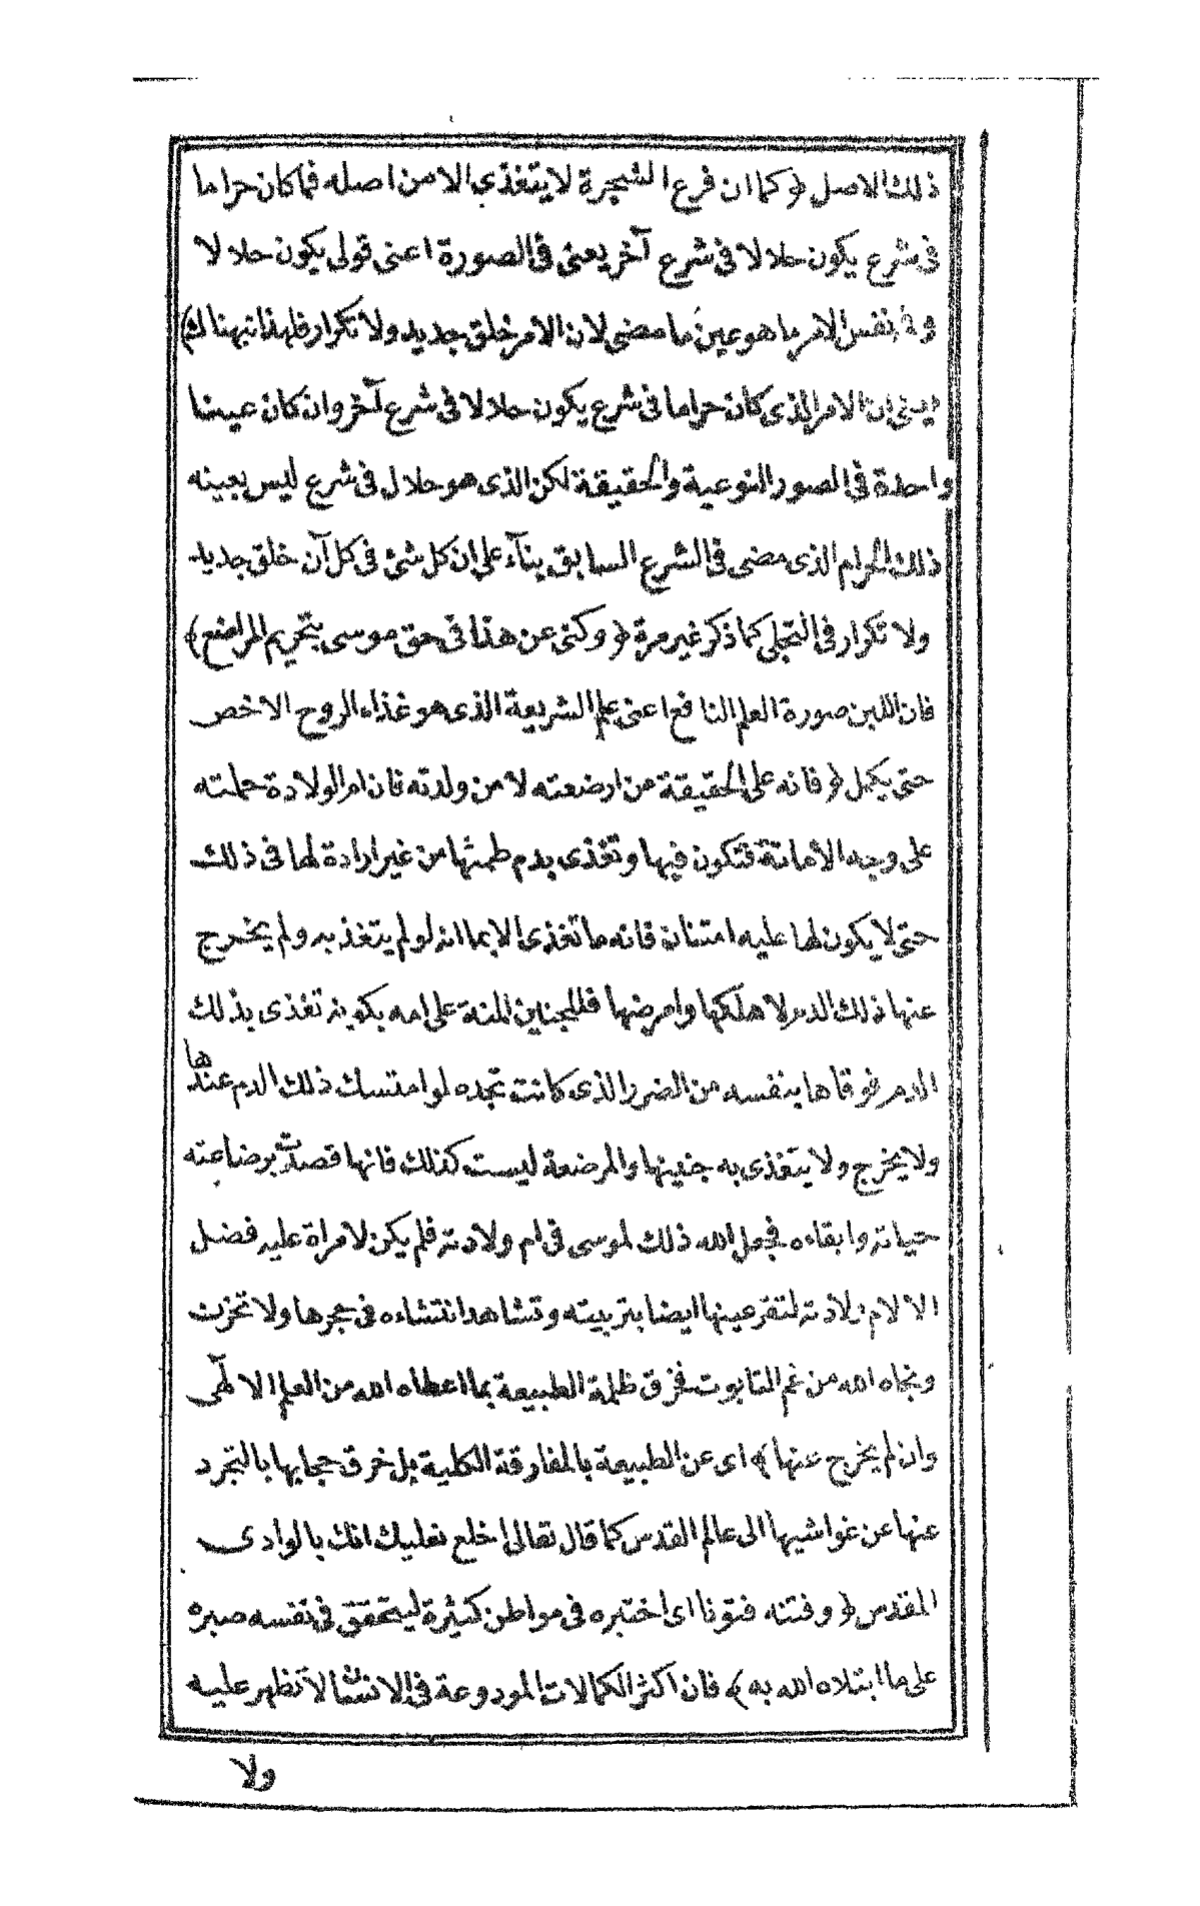 ذلك الاصل ﴿ كما ان فرع الشجرة لا يتغذى الا من اصله فما كان حراما
فى شرع يكون حلالا فى شرع آخر يعنى فى الصورة اعنى قولى يكون حلالا
وفى نفس الامر ما هو عين ما مضى لان الامر خلق جديد ولا تكرار فلهذا نبهناك ﴾
يعنى ان الامر الذى كان حراما فى شرع يكون حلالا فى شرع آخر وان كان عينا
واحدة فى الصور النوعية والحقيقة لكن الذى هو حلال فى شرع ليس بعينه
ذلك الحرام الذى مضى فى الشرع السابق بناآء على ان كل شئ فى كل آن خلق جديد
ولا تكرار فى التجلى كما ذكر غير مرة ﴿ وكنى عن هذا فى حق موسى بتحريم المراضع ﴾
فان اللبن صورة العلم النافع اعنى علم الشريعة الذى هو غذاء الروح الاخص
حتى يكمل ﴿ فانه على الحقيقة من ارضعته لا من ولدته فان ام الولادة حملته
على وجه الامانة فتكون فيها وتغذى بدم طمثها من غير ارادة لها فى ذلك
حتى لا يكون لها عليه امتنان فانه ما تغذى الا بما انه لو لم يتغذ به ولم يخرج
عنها ذلك الدم لاهلكها وامرضها فللجنين المنة على امه بكونه تغذى بذلك
الدم فوقاها بنفسه من الضرر الذى كانت تجده لو امتسك ذلك الدم عندها
ولا يخرج ولا يتغذى به جنينها والمرضعة ليست كذلك فانها قصدت برضاعته
حياته وابقاءه فجعل الله ذلك لموسى فى ام ولادته فلم يكن لامراة عليه فضل
الا لام ولادته لتقر عينها ايضا بتربيته وتشاهد انتشاءه فى حجرها ولا تحزن
ونجاه الله من غم التابوت فخرق ظلمة الطبيعة بما اعطاه الله من العلم الالٓهى
وان لم يخرج عنها ﴾ اى عن الطبيعة بالمفارقة الكلية بل خرق حجابها بالتجرد
عنها عن غواشيها الى عالم القدس كما قال تعالى اخلع نعليك انك بالوادى
المقدس ﴿ وفتنه فتونا اى اختبره فى مواطن كثيرة ليتحقق فى نفسه صبره
على ما ابتلاه الله به ﴾ فان اكثر الكمالات المودوعة فى الانسان لا تظهر عليه
ولا